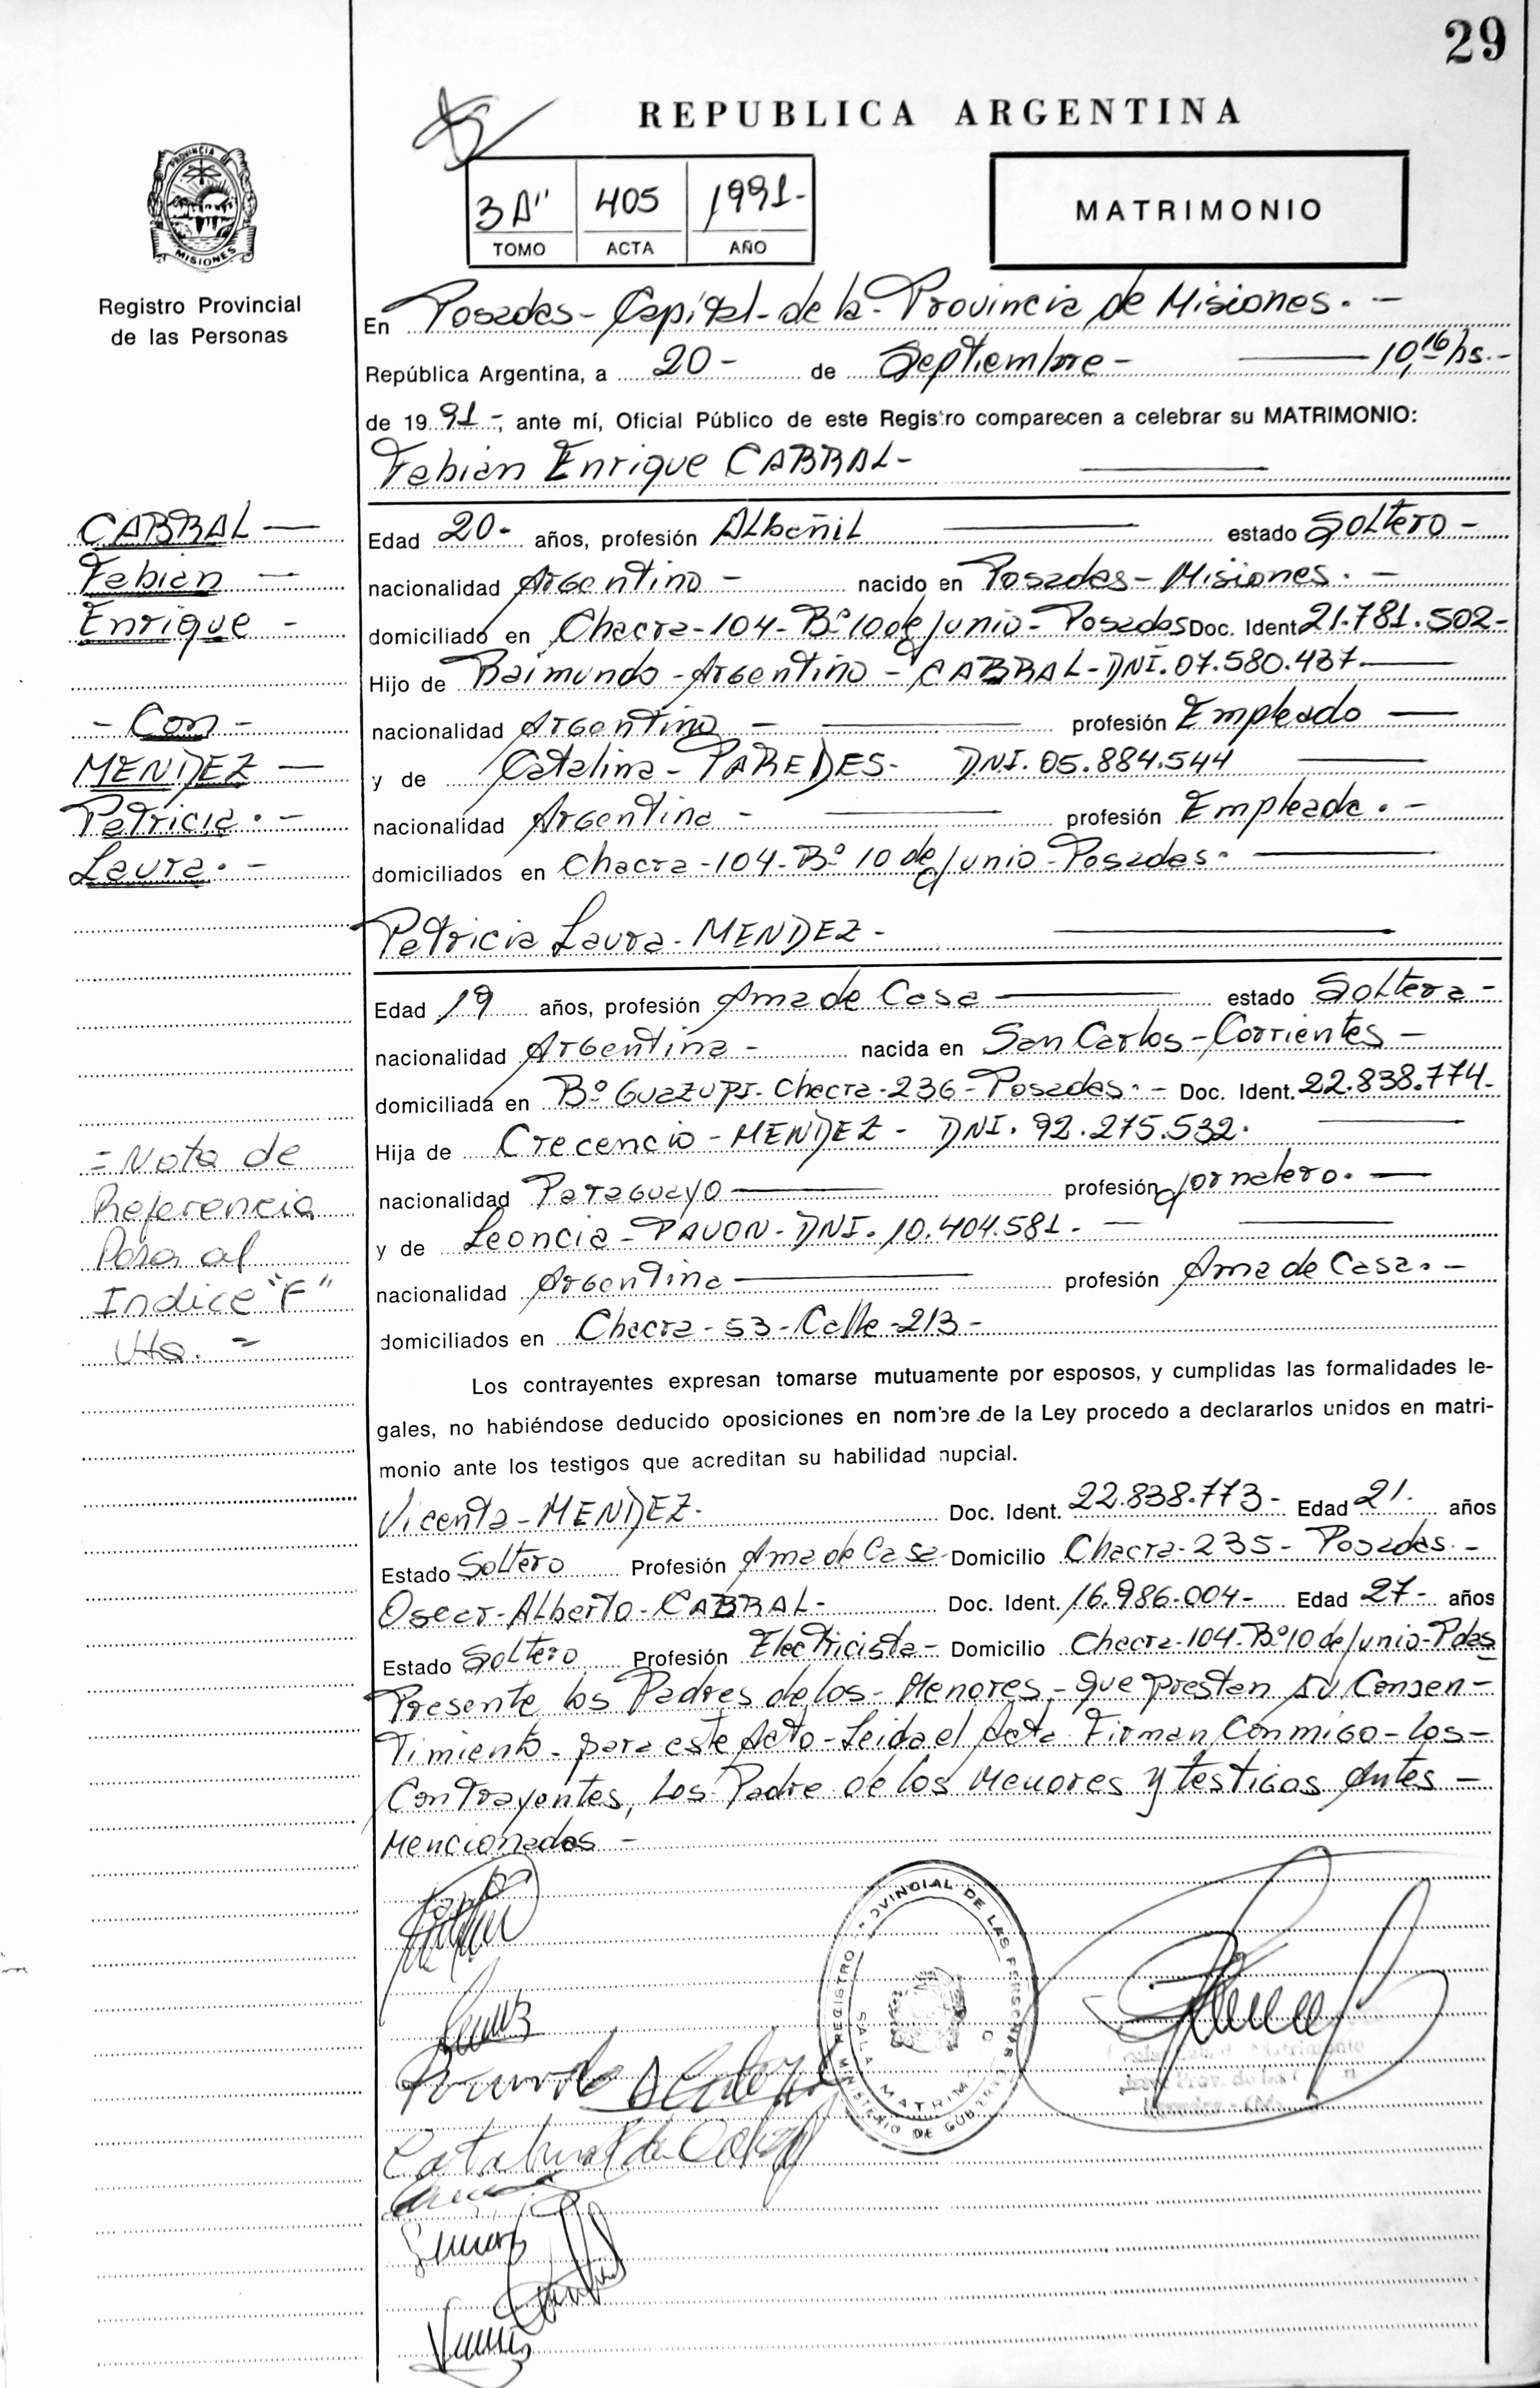 29
REPUBLICA ARGENTINA
3 A" 405 1991-
TOMO ACTA AÑO
MATRIMONIO
PROVINCIA DE
MISIONES
Registro Provincial
de las Personas
En Posadas - Capital - de la - Provincia de Misiones. -
República Argentina, a 20 - de Septiembre - 10,16 hs. -
de 19 91 -, ante mí, Oficial Público de este Registro comparecen a celebrar su MATRIMONIO:
Fabian Enrique CABRAL -
CABRAL -
Fabian -
Enrique -
- Con -
MENDEZ -
Patricia. -
Laura. -
Edad 20 - años, profesión ALbañil estado SoLtero -
nacionalidad Argentino - nacido en Posadas - Misiones. -
domiciliado en Chacra - 104 - Bº 10 de Junio - Posadas Doc. Ident 21.781.502 -
Hijo de Raimundo - Argentino - CABRAL - DNI. 07.580.437
nacionalidad Argentino - profesión Empleado -
y de Catalina - PAREDES - DNI. 05.884.544
nacionalidad Argentina - profesión Empleada. -
domiciliados en Chacra - 104 - Bº 10 de Junio - Posadas.
Patricia Laura - MENDEZ -
Edad 19 años, profesión Ama de Casa estado SoLtera -
nacionalidad Argentina - nacida en San Carlos - Corrientes -
domiciliada en Bº Guazupi - Chacra - 236 - Posadas. - Doc. Ident. 22.838.774 -
Hija de Crecencio - MENDEZ - DNI. 92.275.532.
nacionalidad Paraguayo profesión Jornalero. -
y de Leoncia - PAVON - DNI. 10.404.581 -
nacionalidad Argentina profesión Ama de Casa. -
domiciliados en Chacra - 53 - Calle - 213 -
= Nota de
Referencia
Pasa al
Indice "F"
Vta. =
Los contrayentes expresan tomarse mutuamente por esposos, y cumplidas las formalidades le-
gales, no habiéndose deducido oposiciones en nombre de la Ley procedo a declararlos unidos en matri-
monio ante los testigos que acreditan su habilidad nupcial.
Vicenta - MENDEZ. Doc. Ident. 22.838.773 - Edad 21. años
Estado Soltero Profesión Ama de Casa Domicilio Chacra - 235 - Posadas. -
Oscar - ALberto - CABRAL - Doc. Ident. 16.986.004 - Edad 27 - años
Estado SoLtero Profesión Electricista - Domicilio Chacra - 104 - Bº 10 de Junio - Pdas
Presente los Padres de los - Menores - que prestan su Consen -
timiento - para este Acto - Leida el Acta Firman Conmigo - los -
Contrayentes, los Padre de los Menores y testigos antes -
Mencionados -
REGISTRO PROVINCIAL DE LAS PERSONAS
MINISTERIO DE GOBIERNO
SALA MATRIM